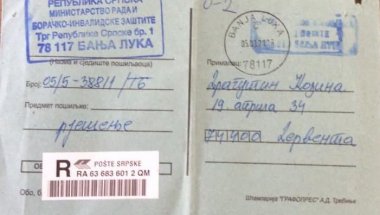 РЕПУБЛИКА СРПСКА
МИНИСТАРСТВО РАДА И
БОРАЧКО-ИНВАЛИДСКЕ ЗАШТИТЕ
Трг Републике Српске бр. 1
78 117 БАЊА ЛУКА
(Назив и сједиште пошиљаоца)
Број: 05/5-3881/ТБ
Предмет пошиљке:
рјешење
R POŠTE SRPSKE
RA 63 683 601 2 QM
БАЊА ЛУКА
78117
Прималац:
Драгутин Козина
19. априла 34
74400 Дервента
Штампарија "ГРАФОПРЕС" А.Д. Требиње